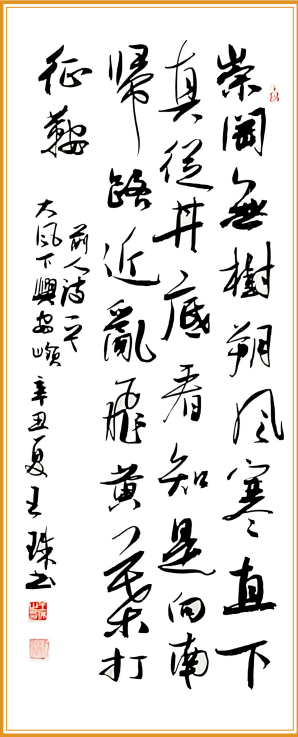 崇岡無樹朔風寒直下
真從井底看知是向南
歸路近亂飛黃葉打
征鞍
前人诗一首
大風下興安嶺 辛丑夏王珠书